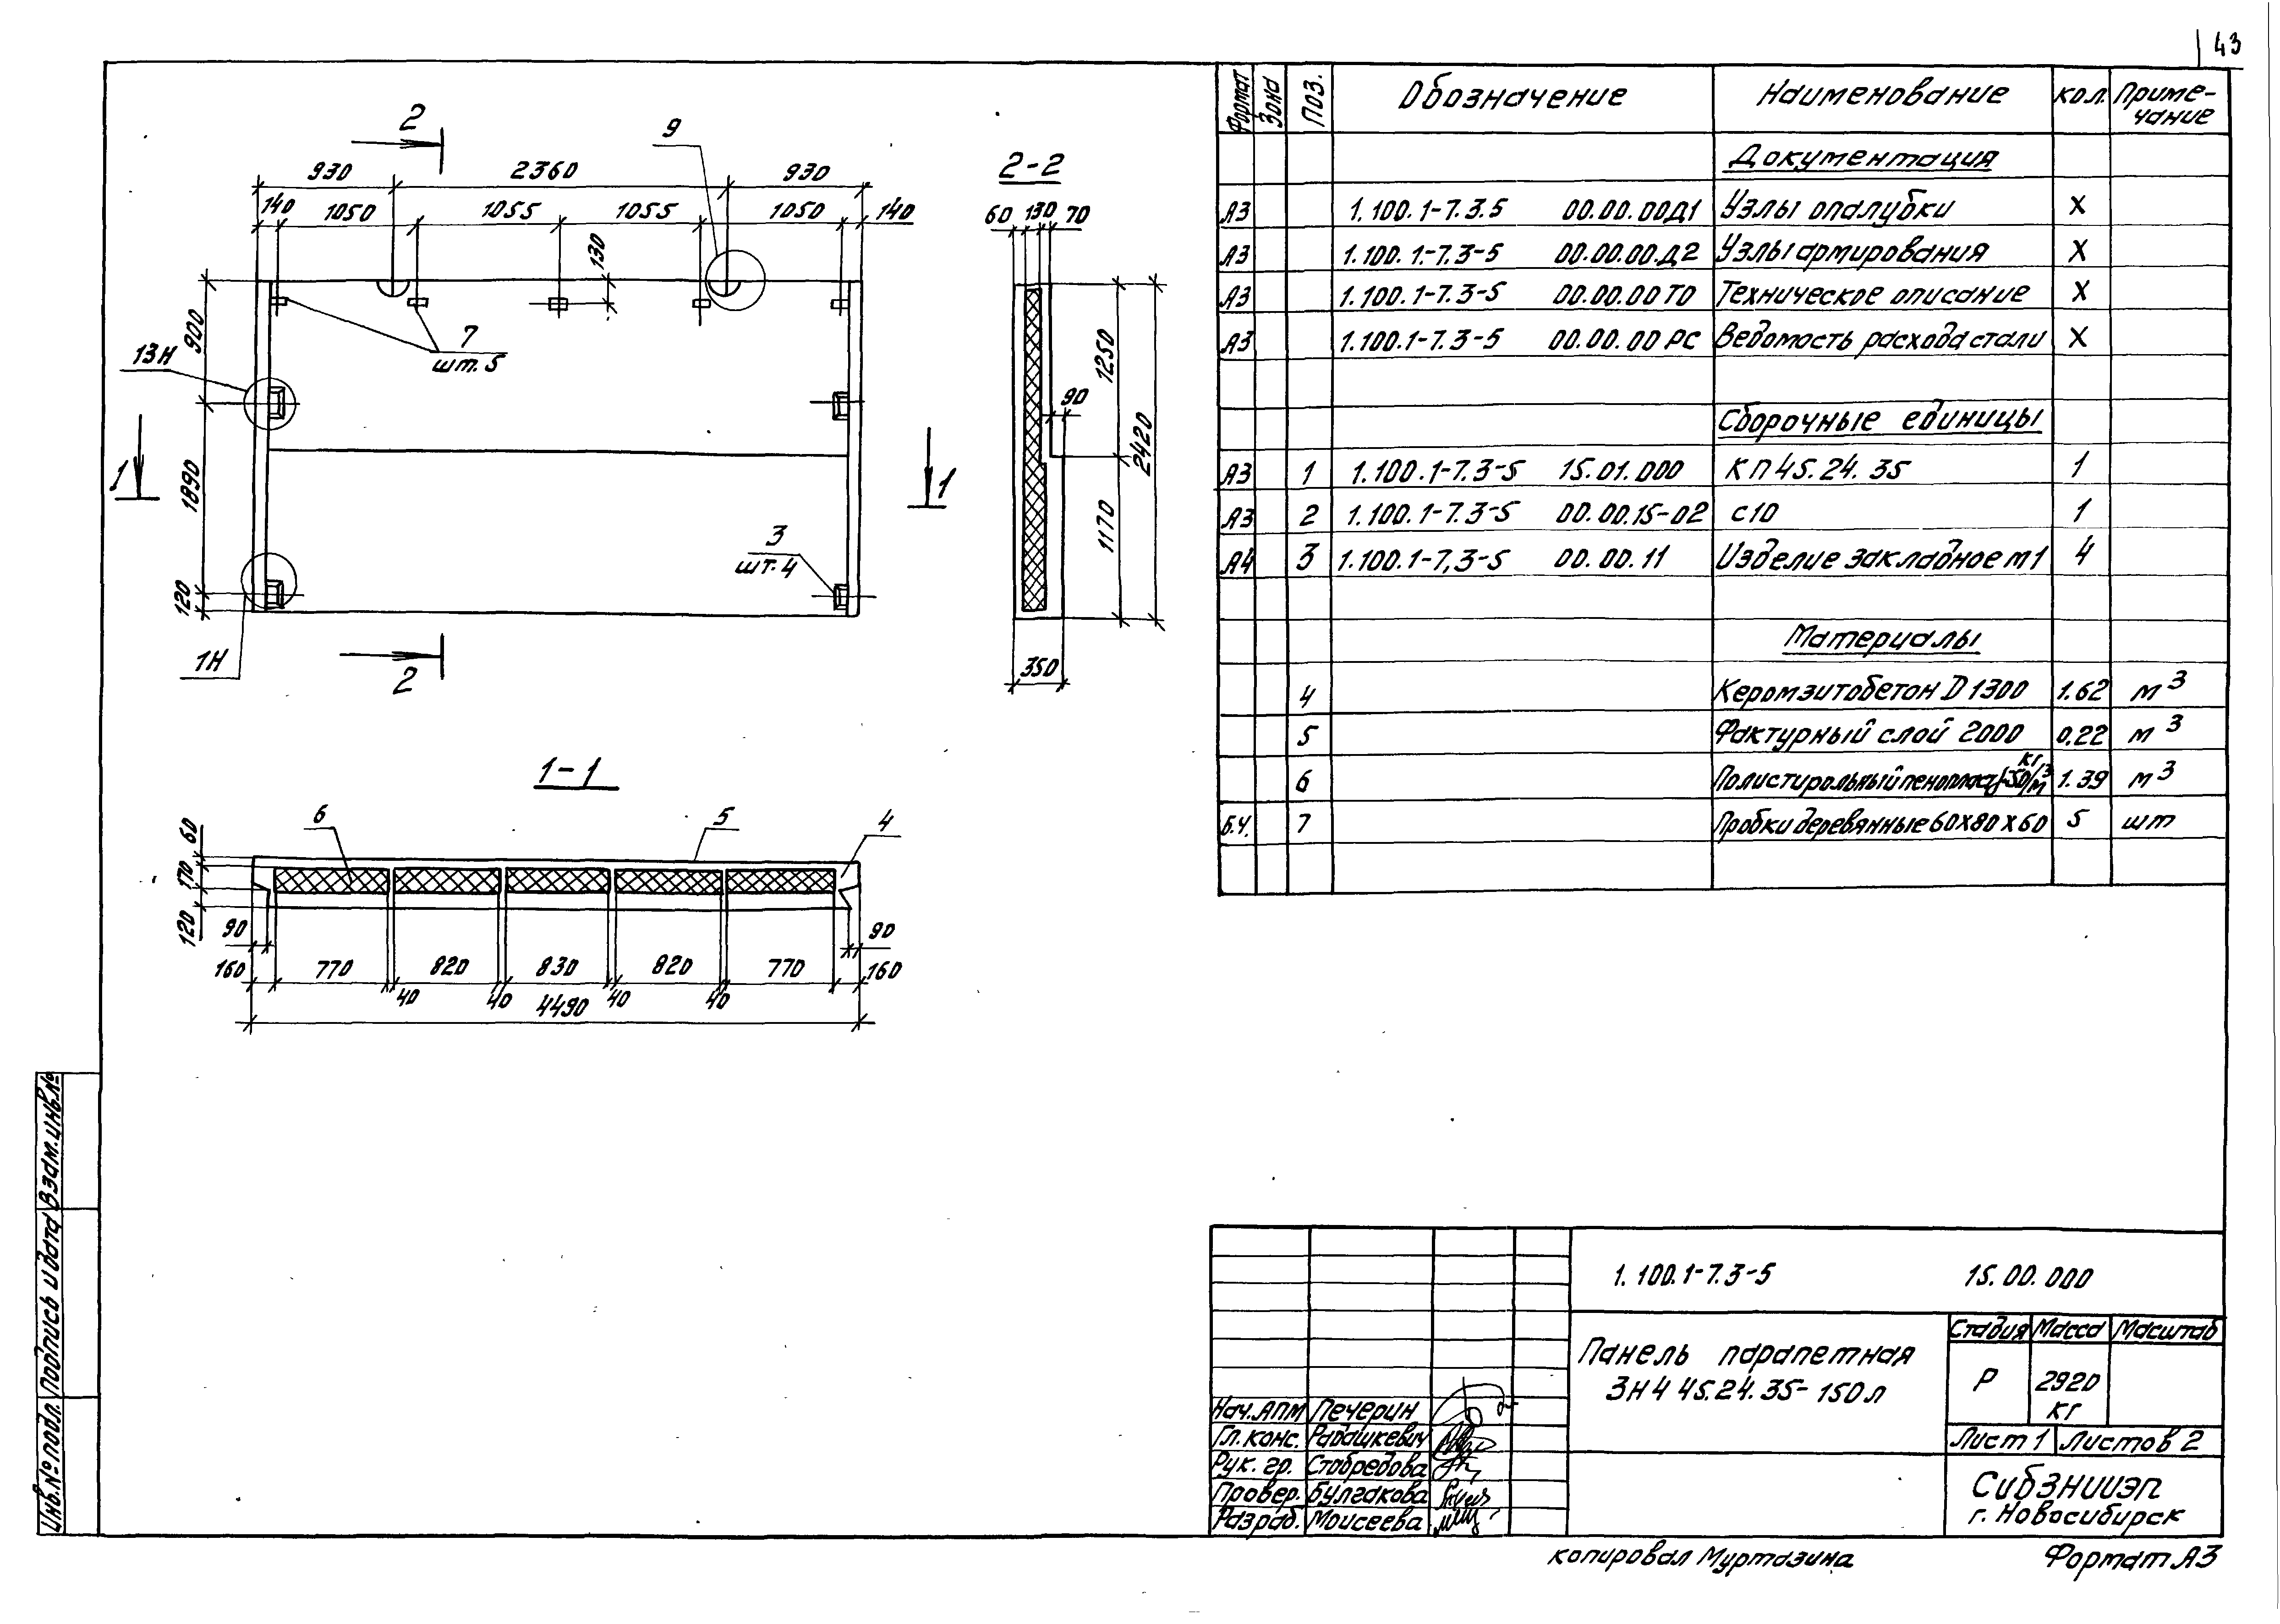 43
2
9
930 2360 930
140 1050 1055 1055 1050 140
130
900
13Н
7
шт. 5
1 1
1890
3
шт. 4
120
1Н
2
2-2
60 130 70
1250
90
2420
1170
350
1-1
6 5 4
60
170
120
90 90
160 770 820 830 820 770 160
40 40 40 40
4490
Формат Зона Поз. Обозначение Наименование Кол. Приме-
чание
Документация
А3 1.100.1-7.3.5 00.00.00Д1 Узлы опалубки Х
А3 1.100.1-7.3-5 00.00.00.Д2 Узлы армирования Х
А3 1.100.1-7.3-5 00.00.00 ТО Техническое описание Х
А3 1.100.1-7.3-5 00.00.00 РС Ведомость расхода стали Х
Сборочные единицы
А3 1 1.100.1-7.3-5 15.01.000 КП 45.24.35 1
А3 2 1.100.1-7.3-5 00.00.15-02 С10 1
А4 3 1.100.1-7,3-5 00.00.11 Изделие закладное м1 4
Материалы
4 Керомзитобетон D 1300 1.62 м³
5 Фактурный слой 2000 0,22 м³
6 Полистирольный пенопласт 50 кг/м³ 1.39 м³
Б.Ч. 7 Пробки деревянные 60х80х60 5 шт
1.100.1-7.3-5 15.00.000
Панель парапетная
3Н4 45.24.35-150л
Стадия Масса Масштаб
Р 2920
кг
Лист 1 Листов 2
СибЗНИИЭП
г. Новосибирск
Нач. АПМ Печерин
Гл. конс. Радашкевич
Рук. гр. Стабредова
Провер. Булгакова
Разраб. Моисеева
копировал Муртазина Формат А3
Взам. инв. №
Подпись и дата
Инв. № подл.